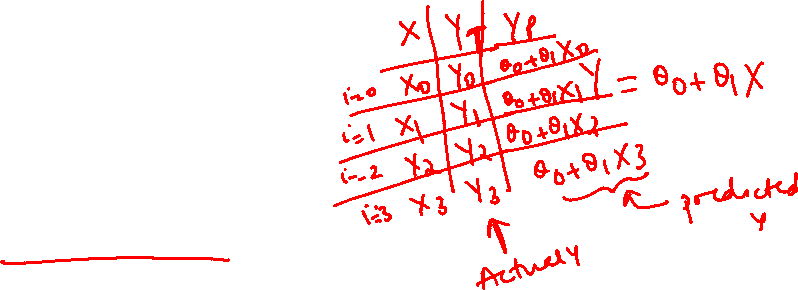 X Y_T Y_P
i=0 X_0 Y_0 θ_0+θ_1X_0
i=1 X_1 Y_1 θ_0+θ_1X_1
i=2 X_2 Y_2 θ_0+θ_1X_2
i=3 X_3 Y_3 θ_0+θ_1X_3
Y = θ_0+θ_1X
predicted
Y
Actual Y